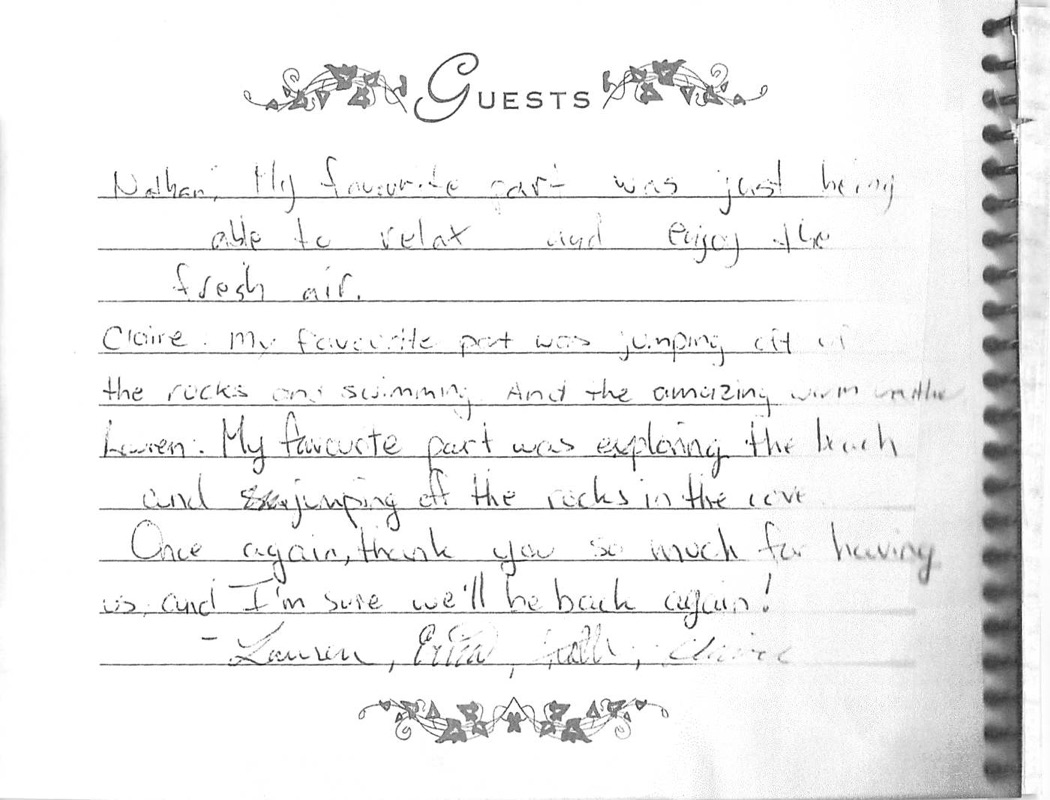 GUESTS
Nathan: My favourite part was just being
able to relax and enjoy the
fresh air.
Claire: My favourite part was jumping off of
the rocks and swimming. And the amazing warm
Lauren: My favourite part was exploring the beach
and jumping off the rocks in the cove.
Once again, thank you so much for having
us, and I'm sure we'll be back again!
- Lauren, Erica, Claire